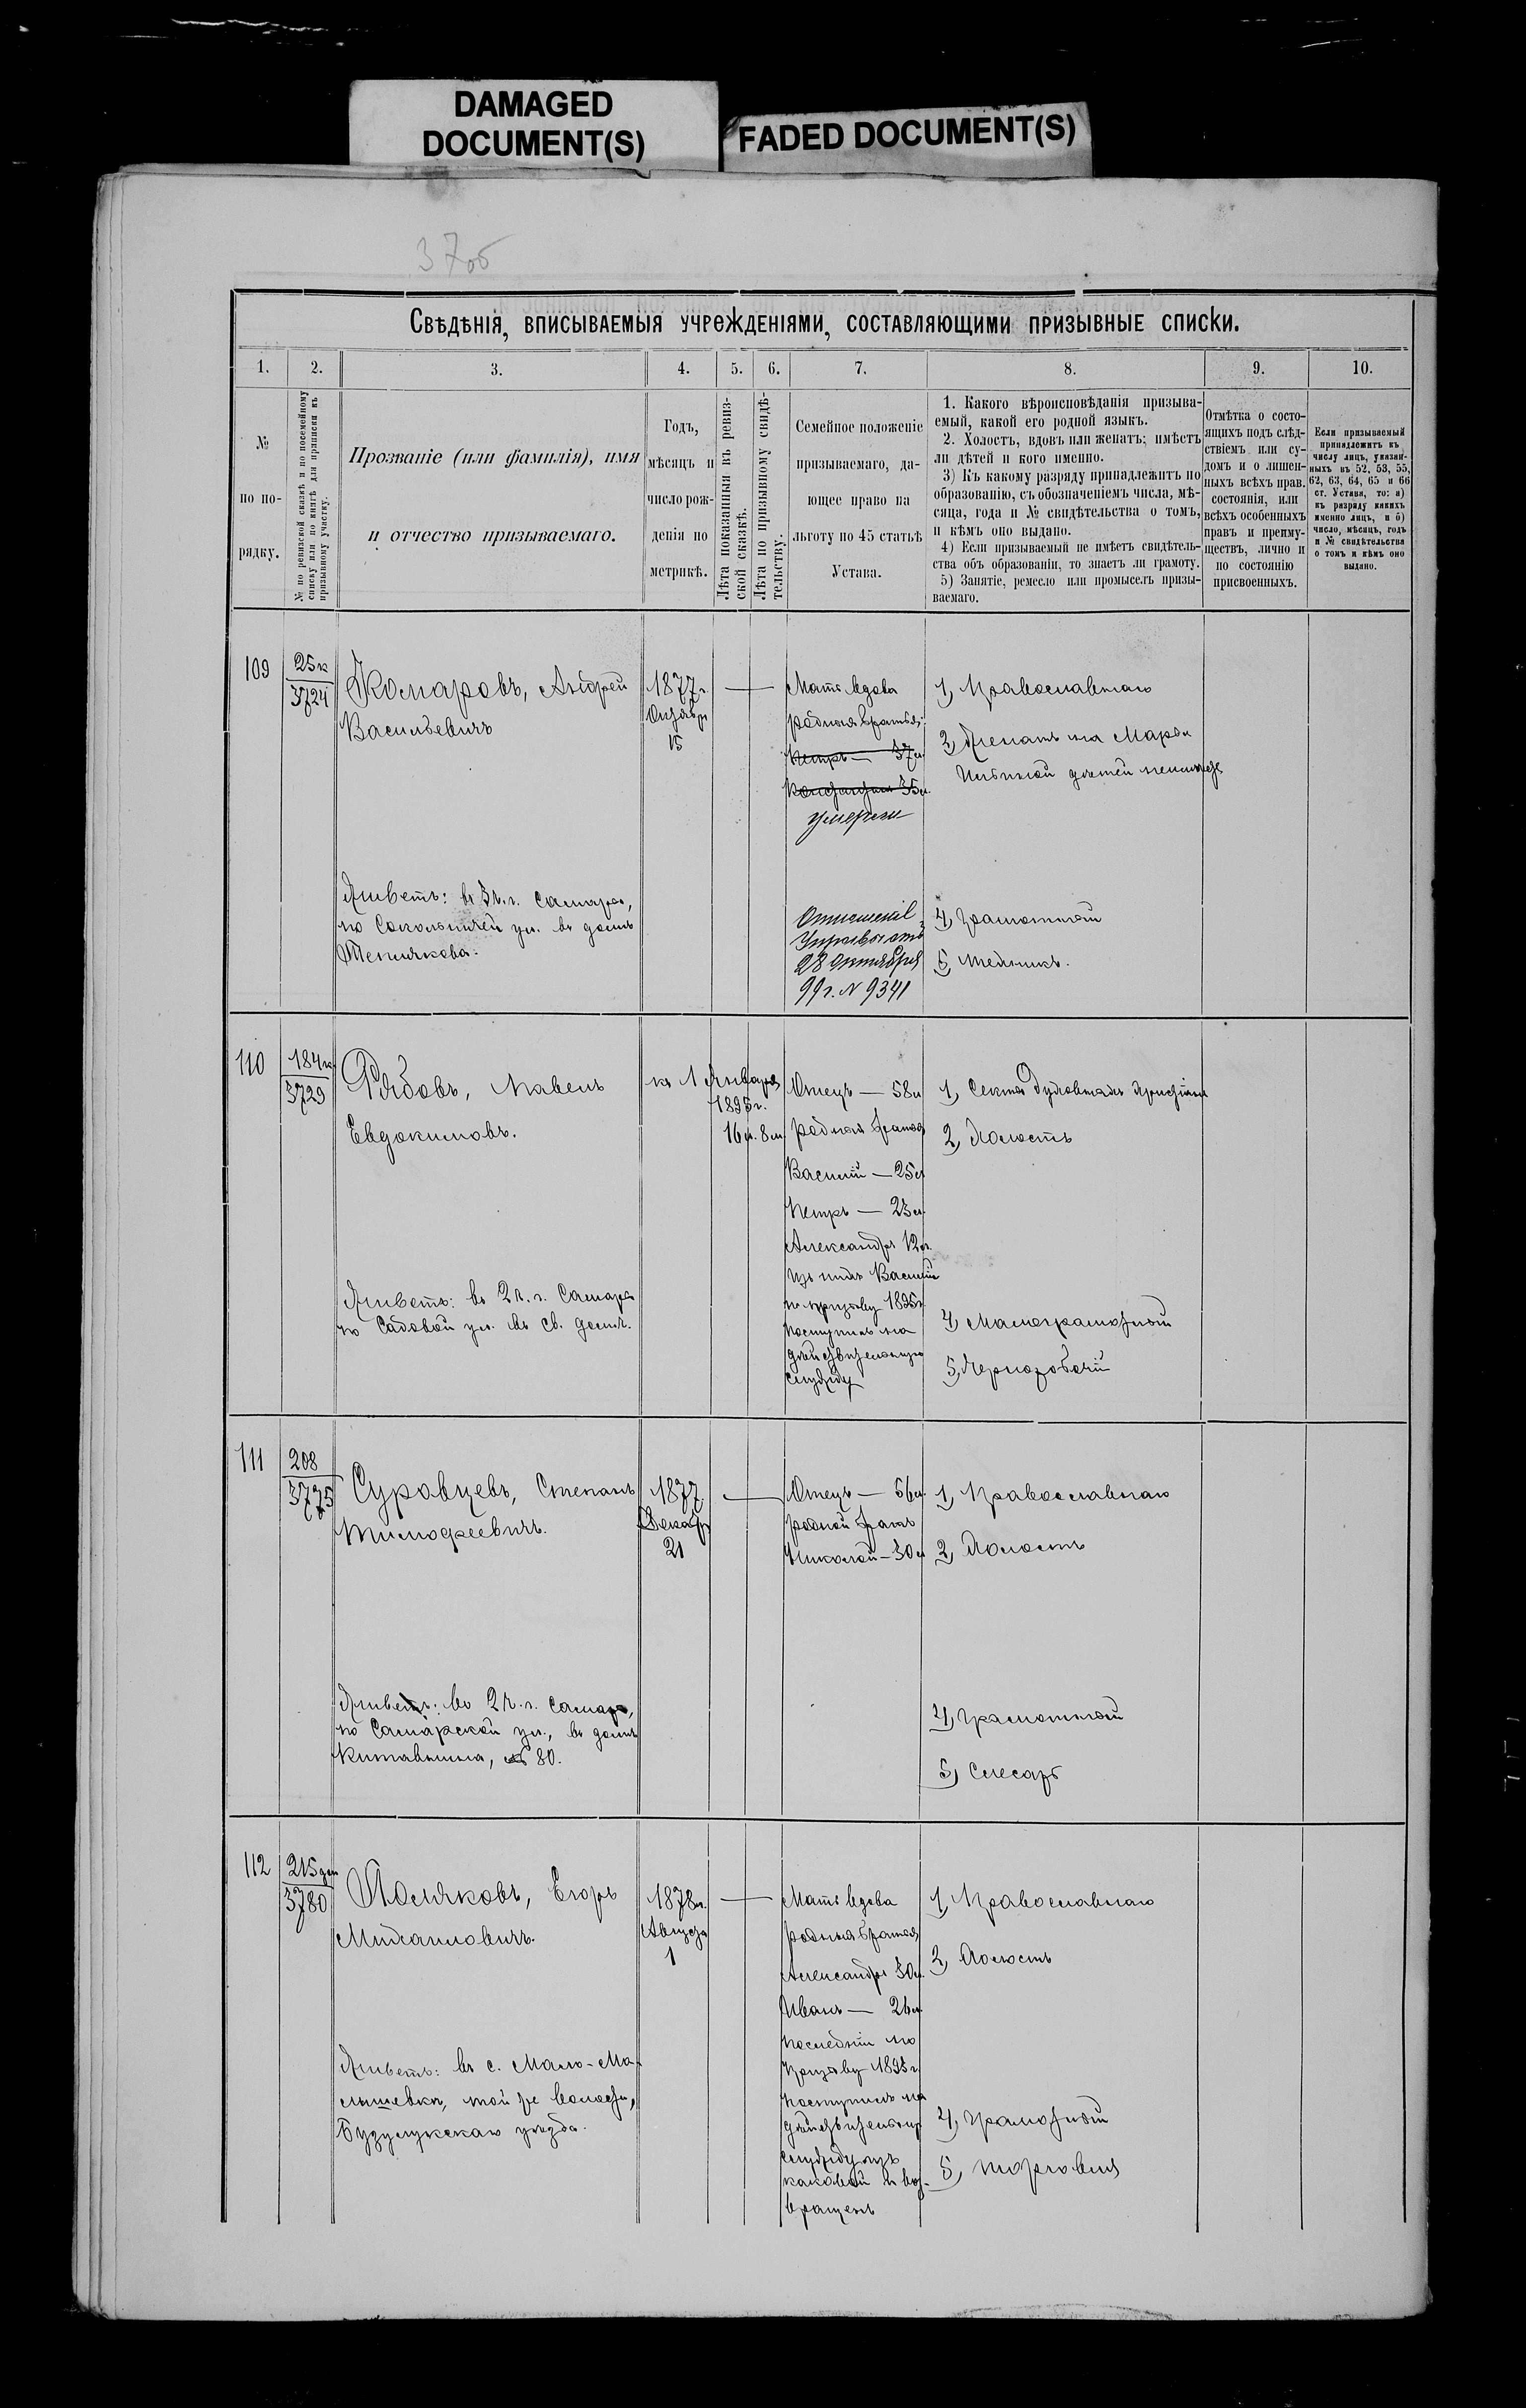 DAMAGED
DOCUMENT(S)
FADED DOCUMENT(S)
37об
Свѣдѣнія, вписываемыя учрежденіями, составляющими призывные списки.
1.
2.
3.
4.
5.
6.
7.
8.
9.
10.
№
по по-
рядку.
№ по ревизской сказкѣ и по посемейному
списку или по книгѣ для приписки къ
призывному участку.
Прозваніе (или фамилія), имя
и отчество призываемаго.
Годъ,
мѣсяцъ и
число рож-
денія по
метрикѣ.
Лѣта показанныя въ ревиз-
ской сказкѣ.
Лѣта по призывному свидѣ-
тельству.
Семейное положеніе
призываемаго, да-
ющее право на
льготу по 45 статьѣ
Устава.
1. Какого вѣроисповѣданія призыва-
емый, какой его родной языкъ.
2. Холостъ, вдовъ или женатъ; имѣетъ
ли дѣтей и кого именно.
3) Къ какому разряду принадлежитъ по
образованію, съ обозначеніемъ числа, мѣ-
сяца, года и № свидѣтельства о томъ,
и кѣмъ оно выдано.
4) Если призываемый не имѣетъ свидѣтель-
ства объ образованіи, то знаетъ ли грамоту.
5) Занятіе, ремесло или промыселъ призы-
ваемаго.
Отмѣтка о состо-
ящихъ подъ слѣд-
ствіемъ или су-
домъ и о лишен-
ныхъ всѣхъ прав.
состоянія, или
всѣхъ особенныхъ
правъ и преиму-
ществъ, лично и
по состоянію
присвоенныхъ.
Если призываемый
принадлежитъ къ
числу лицъ, указан-
ныхъ въ 52, 53, 55,
62, 63, 64, 65 и 66
ст. Устава, то: а)
къ разряду какихъ
именно лицъ, и б)
число, мѣсяцъ, годъ
и № свидѣтельства
о томъ и кѣмъ оно
выдано.
109
25к
3724
Комаровъ, Андрей
Васильевичъ
Живетъ: въ 3 ч. г. Самары,
по Сокольничей ул. въ домѣ
1877 г.
Октябр
15
Мать вдова
родныя братья:
Петръ — 37 л.
Константинъ 35 л.
умерли
28 Октября
99 г. № 9341
1, Православнаго
2, Женатъ на Марьи
дѣтей неимѣетъ
4, Грамотный
5, Мельникъ.
110
184к
3729
Рябовъ, Павелъ
Евдокимовъ.
Живетъ: въ 2 ч. г. Самары
по Садовой ул. въ св. домѣ.
къ 1 Января
1895 г.
16 л. 8 м.
Отецъ — 58 л
родныя братья
Василій — 25 л
Петръ — 23 л.
Александръ 12 л.
Изъ нихъ Василій
по призыву 1895 г
поступилъ на
дѣйствительную
службу
1, Секта духовныхъ христіанъ
2, Холостъ
4, Малограмотный
5, Чернорабочій
111
208
3775
Суровцевъ, Степанъ
Тимофеевичъ.
Живетъ: во 2 ч. г. Самары,
по Самарской ул., въ домѣ
№ 80.
1877
Декабр
21
Отецъ — 56 л.
родной братъ
Николай — 30 л
1, Православнаго
2, Холостъ
4, Грамотный
5, Слесарь
112
215
3780
Поляковъ, Егоръ
Михаиловичъ.
Живетъ: въ с. Мало-Ма-
лышевкѣ, той же волости,
Бузулукскаго уѣзда.
1878 г.
Августа
1
Мать вдова
родныя братья
Александръ 30 л.
Иванъ — 26 л
последній по
призыву 1893 г
поступилъ на
дѣйствительную
службу изъ
каковой и воз-
вращенъ
1, Православнаго
2, Холостъ
4, Грамотный
5, Торговля